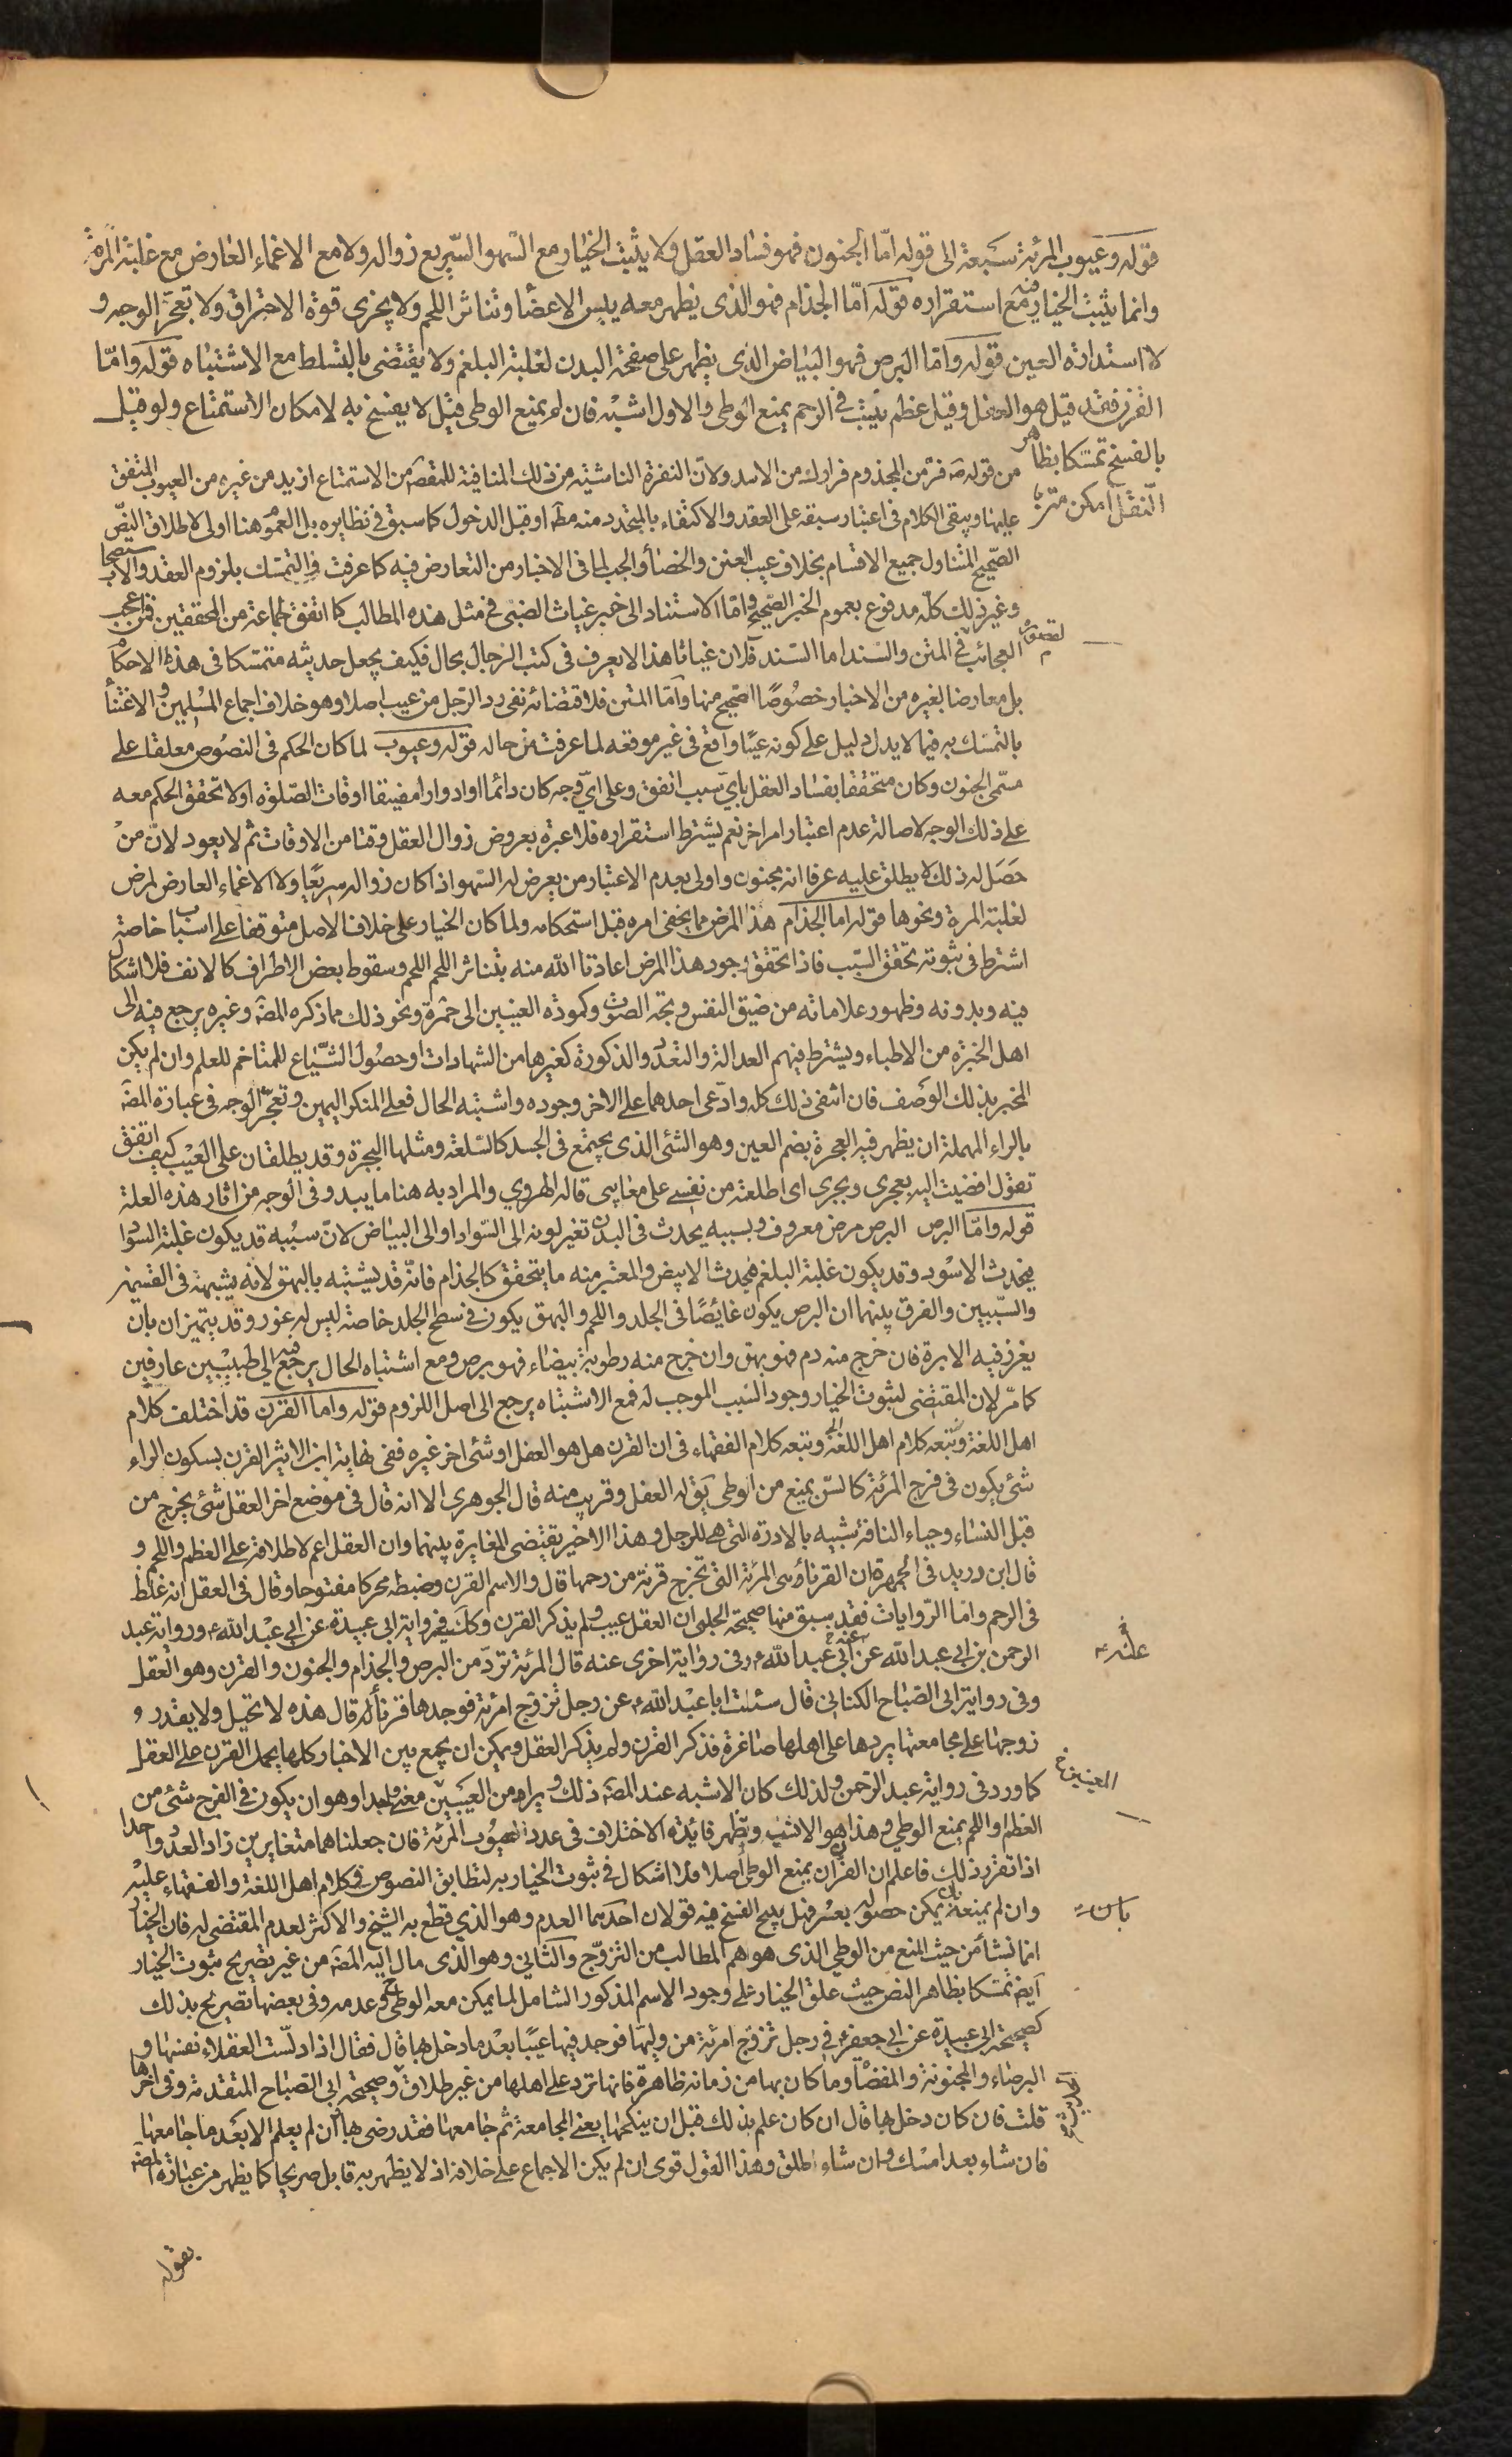 قوله وعيوب المرئة سبعة الى قوله امّا الجنون فهو فساد العقل ولا يثبت الخيار مع السّهو السّريع زواله ولا مع الاغماء العارض مع غلبة المرة
وانما يثبت الخيار فيه مع استقراره قوله امّا الجذام فهو الذى يظهر معه يبس الاعضاء وتناثر اللحم ولا يجزى قوة الاحتراق ولا تعجر الوجه و
لا استدارة العين قوله وامّا البرص فهو البياض الذى يظهر على صفحة البدن لغلبة البلغم ولا يقتضى بالتسلط مع الاشتباه قوله وامّا
القرن فقد قيل هو العفل وقيل عظم ينبت فى الرحم يمنع الوطى والاول اشبه فان لم يمنع الوطى قيل لا يفسخ به لامكان الاستمتاع ولو قيل
بالفسخ تمسّكا بظاهر
النّقل امكن
من قوله ص فرّ من المجذوم فرارك من الاسد ولانّ النفرة الناشئة من ذلك المنافية للمقصود من الاستمتاع ازيد من غيره من العيوب المتفق
عليها ويبقى الكلام فى اعتبار سبقه على العقد والاكتفاء بالمتجدد منه مطلقا او قبل الدخول كما سبق فى نظايره بل العموم هنا اولى لاطلاق النصّ
الصّحيح المتناول جميع الاقسام بخلاف عيب العنن والخصاء والجب لما فى الاخبار من التعارض فيه كما عرفت والتمسّك بلزوم العقد والاستصحاب
وغير ذلك كلّه مدفوع بعموم الخبر الصّحيح وامّا الاستناد الى خبر غياث الضبى فى مثل هذه المطالب كما اتفق لجماعة من المحققين فمن اعجب
العجائب لقصوره فى المتن والسّند اما السّند فلان غياثا هذا لا يعرف فى كتب الرّجال بحال فكيف يجعل حديثه متمسّكا فى هذه الاحكام
بل معارضا لغيره من الاخبار خصوصًا الصّحيح منها وامّا المتن فلاقتضائه نفى ردّ الرّجل من عيب اصلا وهو خلاف اجماع المسلمين والاعتناء
بالتمسّك به فيما لا يدل دليل على كونه عيبًا واقع فى غير موقعه لما عرفت من حاله قوله وعيوب لما كان الحكم فى النصوص معلقا على
مسمّى الجنون وكان متحققا بفساد العقل باىّ سبب اتفق وعلى اىّ وجه كان دائما او ادوارا مفيقا اوقات الصّلوة او لا تحقق الحكم معه
على ذلك الوجه لاصالة عدم اعتبار امر اخر نعم يشترط استقراره فلا عبرة بعروض زوال العقل وقتا من الاوقات ثم لا يعود لانّ من
حصل له ذلك لا يطلق عليه عرفا انه مجنون واولى بعدم الاعتبار من يعرض له السّهو اذا كان زواله سريعًا ولا الاغماء العارض لمرض
لغلبة المرة ونحوها قوله اما الجذام هذا المرض مما يخفى امره قبل استحكامه ولما كان الخيار على خلاف الاصل متوقفا على اسباب خاصة
اشترط فى ثبوته تحقق السّبب فاذا تحقق وجود هذا المرض اعاذنا الله منه بتناثر اللحم وسقوط بعض الاطراف كالانف فلا اشكال
فيه وبدونه وظهور علاماته من ضيق النفس وبحّة الصوت وكمودة العينين الى حمرة ونحو ذلك مما ذكره المصّ وغيره يرجع فيه الى
اهل الخبرة من الاطباء ويشترط فيهم العدالة والتعدّد والذكورة كغيرها من الشهادات او حصول الشّياع للمتاخم للعلم وان لم يكن
المخبر بذلك الوصف فان انتفى ذلك كله وادّعى احدهما على الاخر وجوده واشتبه الحال فعلى المنكر اليمين وتعجّر الوجه فى عبارة المصّ
بالراء المهملة ان يظهر فيه العجرة بضم العين وهو الشئ الذى يجتمع فى الجسد كالسّلعة ومثلها البجرة وقد يطلقان على العيب كيف اتفق
تقول افضيت اليه بعجرى وبجرى اى اطلعته من نفسى على معايبى قاله الهروي والمراد به هنا ما يبدو فى الوجه من اثار هذه العلة
قوله وامّا البرص البرص مرض معروف وبسببه يحدث فى البدن تغير لونه الى السّواد او الى البياض لانّ سببه قد يكون غلبة السّوداء
فيحدث الاسود وقد يكون غلبة البلغم فيحدث الابيض والمعتبر منه ما يتحقق كالجذام فانّه قد يشتبه بالبهق لانه يشبهه فى القسمين
والسّببين والفرق بينهما ان البرص يكون غائصًا فى الجلد واللحم والبهق يكون فى سطح الجلد خاصة ليس له غور وقد يتميزان بان
يغرز فيه الابرة فان خرج منه دم فهو بهق وان خرج منه رطوبة بيضاء فهو برص ومع اشتباه الحال يرجع فيه الى طبيبين عارفين
كما مرّ لان المقتضى لثبوت الخيار وجود السّبب الموجب له فمع الاشتباه يرجع الى اصل اللزوم قوله واما القرن قد اختلف كلام
اهل اللغة وتبعه كلام اهل اللغة وتبعه كلام الفقهاء فى ان القرن هل هو العفل او شئ اخر غيره ففى نهاية ابن الاثير القرن بسكون الراء
شئ يكون فى فرج المرئة كالسّن يمنع من الوطى يق له العفل وقريب منه قال الجوهرى الا انه قال فى موضع اخر العفل شئ يخرج من
قبل النساء وحياء الناقة شبيه بالادرة التى هى للرجل وهذا الاخير يقتضى المغايرة بينهما وان العفل اعم لاطلاقه على العظم واللحم و
قال ابن دريد فى الجمهرة ان القرناء هى المرئة التى تخرج قرنة من رحمها قال والاسم القرن وضبطه محركا مفتوحا وقال فى العفل انه غلظ
فى الرحم وامّا الرّوايات فقد سبق منها صحيحة الحلبى ان العفل عيب ولم يذكر القرن وكك فى رواية ابى عبيدة عن ابى عبد الله ع ورواية عبد
الرحمن بن ابى عبد الله عن ابى عبد الله ع وفى رواية اخرى عنه قال المرئة تردّ من البرص والجذام والجنون والقرن وهو العفل
وفى رواية ابى الصّباح الكنانى قال سئلت ابا عبد الله ع عن رجل تزوّج امرئة فوجد بها قرنا قال هذه لا تحبل ولا يقدر
زوجها على مجامعتها يردها على اهلها صاغرة فذكر القرن ولم يذكر العفل ويمكن ان يجمع بين الاخبار كلها بحمل القرن على العفل
كما ورد فى رواية عبد الرّحمن ولذلك كان الاشبه عند المصّ ذلك ويراد من العيبين معنى واحدا وهو ان يكون فى الفرج شئ من
العظم او اللحم يمنع الوطى وهذا هو الاشبه ويظهر فائدة الاختلاف فى عدد عيوب المرئة فان جعلناهما متغايرين زاد العدد واحدا
اذا تقرّر ذلك فاعلم ان القرن ان يمنع الوطى اصلا فلا اشكال فى ثبوت الخيار به لتطابق النصوص وكلام اهل اللغة والفقهاء عليه
وان لم يمنعه بان يمكن حصوله بعسر فهل يبيح الفسخ فيه قولان احدهما العدم وهو الذي قطع به الشيخ والاكثر لعدم المقتضى له فان الخيار
انما نشأ من حيث المنع من الوطى الذى هو اهم المطالب من التزوّج والثانى وهو الذى مال اليه المصّ من غير تصريح ثبوت الخيار
ايض تمسّكا بظاهر النص حيث علق الخيار على وجود الاسم المذكور الشامل لما يمكن معه الوطى وعدمه وفى بعضها تصريح بذلك
كصحيحة ابى عبيدة عن ابى جعفر ع فى رجل تزوّج امرئة من وليّها فوجد فيها عيبًا بعد ما دخل بها قال فقال اذا دلّست العفلاء نفسها و
البرصاء والمجنونة والمفضاة وما كان بها من زمانة ظاهرة فانها ترد على اهلها من غير طلاق وصحيحة ابى الصّباح المتقدمة وفى اخرها
قلت فان كان دخل بها قال ان كان علم بذلك قبل ان ينكحها يعنى المجامعة ثم جامعها فقد رضى بها وان لم يعلم الا بعد ما جامعها
فان شاء بعد امسك وان شاء طلق وهذا القول قوى ان لم يكن الاجماع على خلافه اذ لا يظهر به قايل صريحا كما يظهر من عبارة المصّ
بقوله